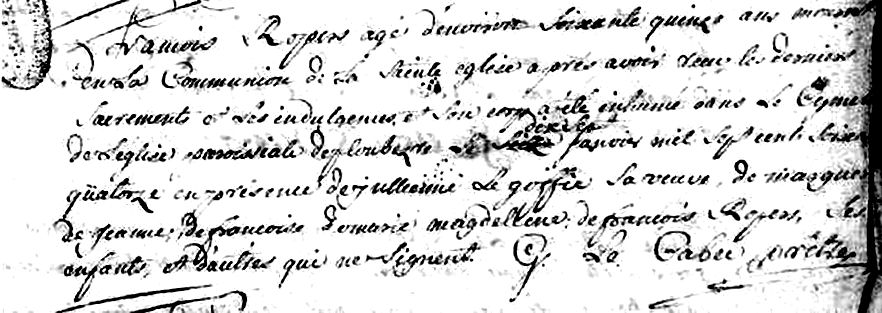 francois Ropers agé denviron soixante quinze ans mourut
en La Communion de La sainte eglise apres avoir recu les derniers
sacrements et Les indulgences et son corps a été inhumé dans Le Cymet
de Leglise paroissiale de ploubezre Le dix sept janvier mil sept cent soixan
quatorze en presence de jullienne Le goffic sa veuve, de marguer
de jeanne, de francoise de marie magdellene, de francois Ropers, ses
enfants, et dautres qui ne signent G. Le Cabec prêtre